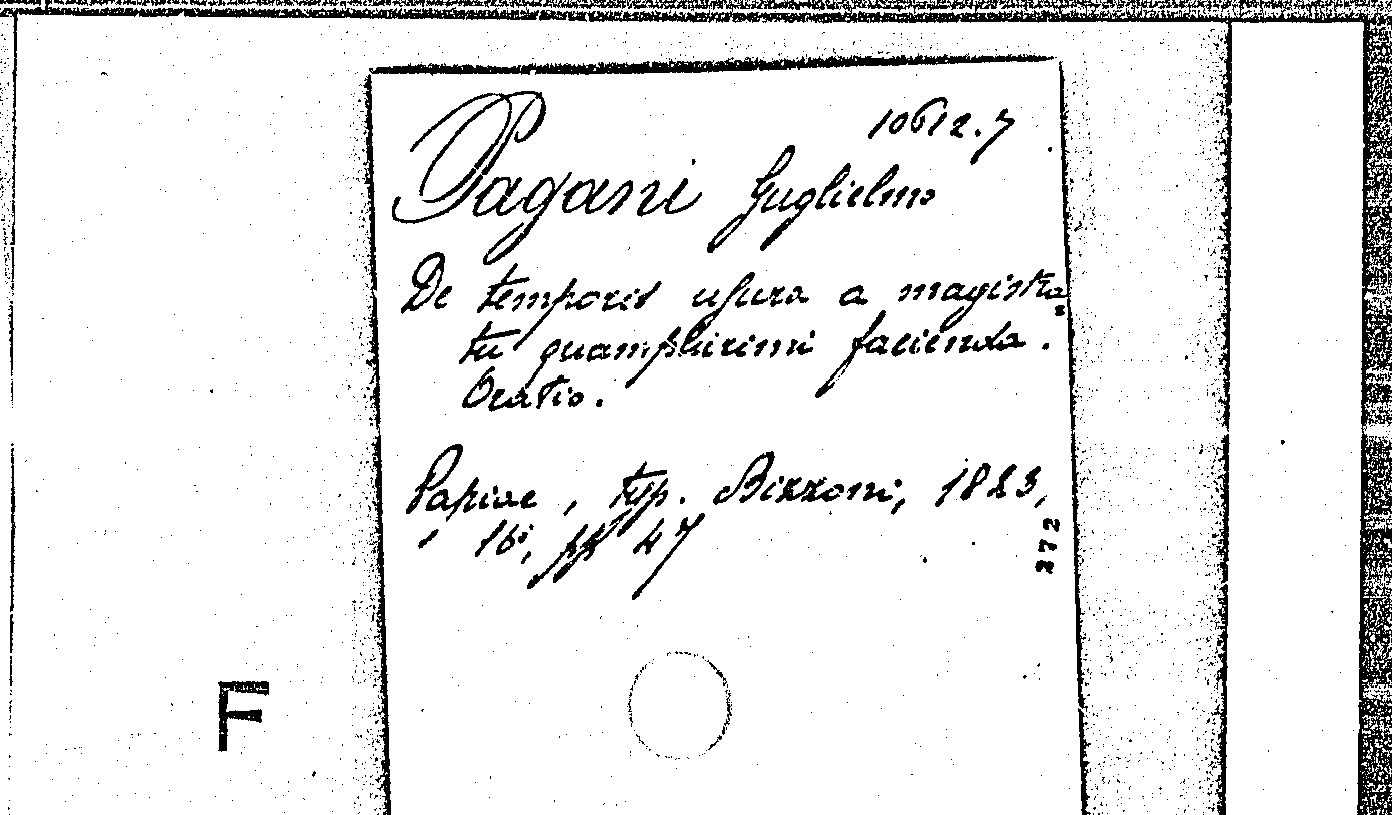 10612.7
Pagani Guglielmo
De temporis usura a magistra
tu quamplurimi facienda.
Oratio.
Papiae, typ. Bizzoni, 1823,
16°, pp 47
272
F